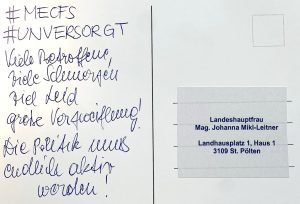 #MECFS
#UNVERSORGT
Viele Betroffene,
viele Schmerzen
viel Leid
große Verzweiflung!
Die Politik muss
endlich aktiv
werden!
Landeshauptfrau
Mag. Johanna Mikl-Leitner
Landhausplatz 1, Haus 1
3109 St. Pölten